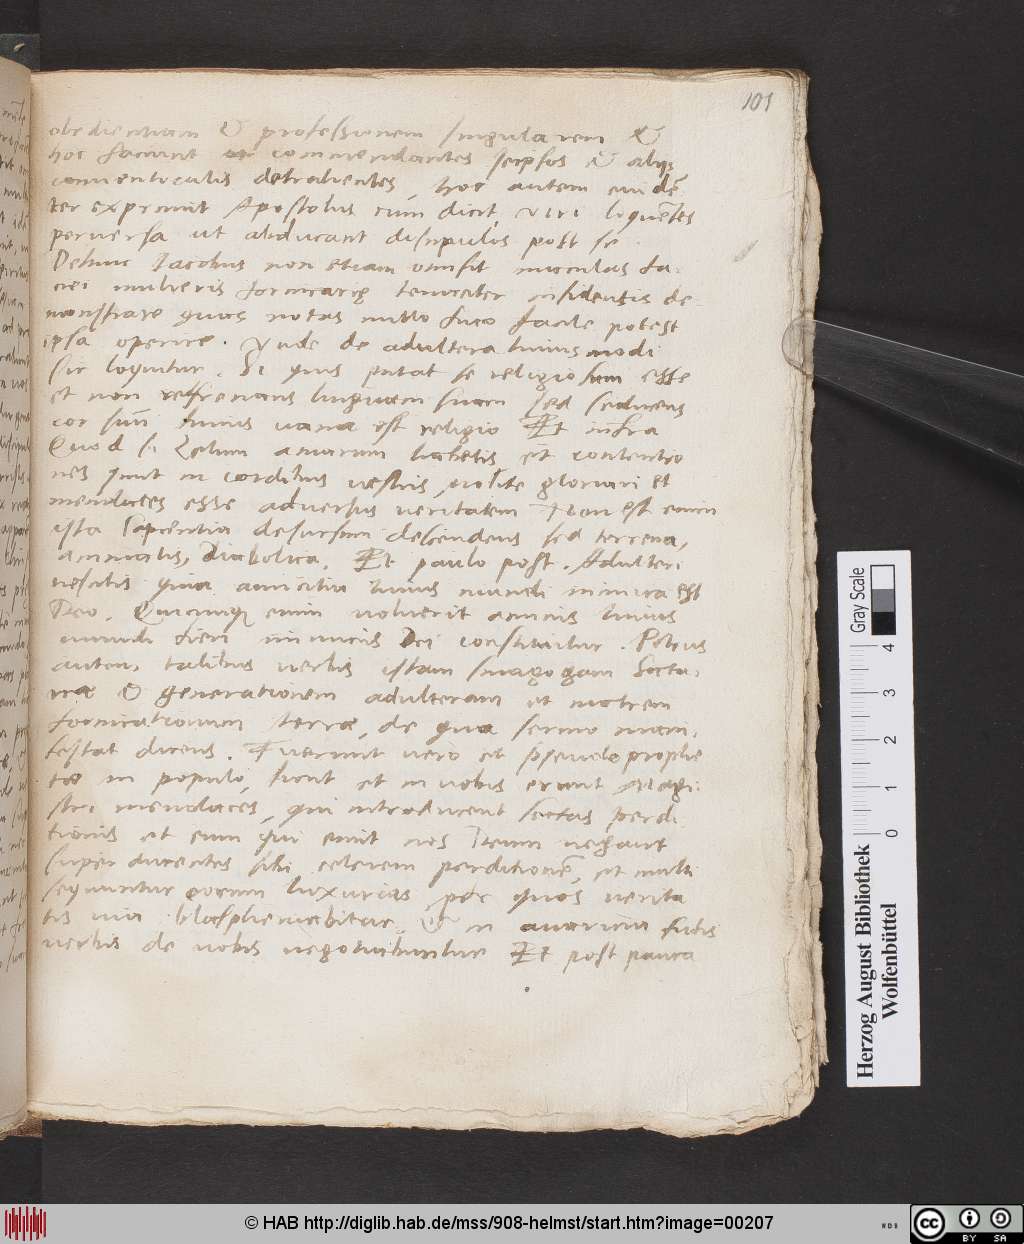 101
obedientiam & professionem singularem &
hoc faciunt ut commendantes seipsos & alijs
conuenticulis detrahentes, hoc autem euidē
ter exprimit Apostolus cum dicit, viri loquētes
peruersa ut abducant discipulos post se.
Dehinc Iacobus non etiam omisit maculas fa:
ciei mulieris fornicarię tenaciter insidentis de-
monstrare quas notas nullo fuco facile potest
ipsa operire. Vnde de adultera huius modi
sic loquitur. Si quis putat se religiosum esse
et non refrenans linguam suam sed seducens
cor suū huius uana est religio Et infra
Quod si Zelum amarum habetis et contentio
nes sunt in cordibus vestris, nolite gloriari et
mendaces esse aduersus ueritatem Non est enim
ista sapientia desursum descendens sed terrena,
animalis, diabolica. Et paulo post. Adulteri
nescitis quia amicitia huius mundi inimica est
Deo. Quicunq enim voluerit amicus huius
mundi fieri inimicus Dei constituitur. Petrus
autem talibus uerbis istam sinagogam Secta:
ria & generationem adulteram ut matrem
fornicationum terrae, de qua sermo mani:
festat dicens. Fuerunt uero et pseudoprophe
tae in populo, sicut et in uobis erunt Magi:
stri mendaces, qui introducent sectas perdi
tionis et eum qui emit nos Deum negant
superducentes sibi celerem perditionē, et multi
sequuntur eorum luxurias per quos uerita
tis uia blasphemabitur, & in auaricia fictis
uerbis de uobis negotiabuntur Et post pauca
Gray Scale
0 1 2 3 4
Herzog August Bibliothek
Wolfenbüttel
© HAB http://diglib.hab.de/mss/908-helmst/start.htm?image=00207
WDB
cc BY SA